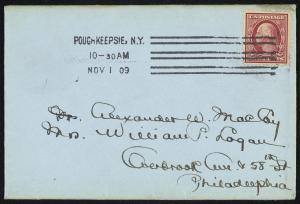 POUGHKEEPSIE, N.Y.
10-30 AM
NOV 1 09
U.S. POSTAGE
Dr. Alexander W. MacCoy
Mrs. William P. Logan
Overbrook Ave & 58th St
Philadelphia